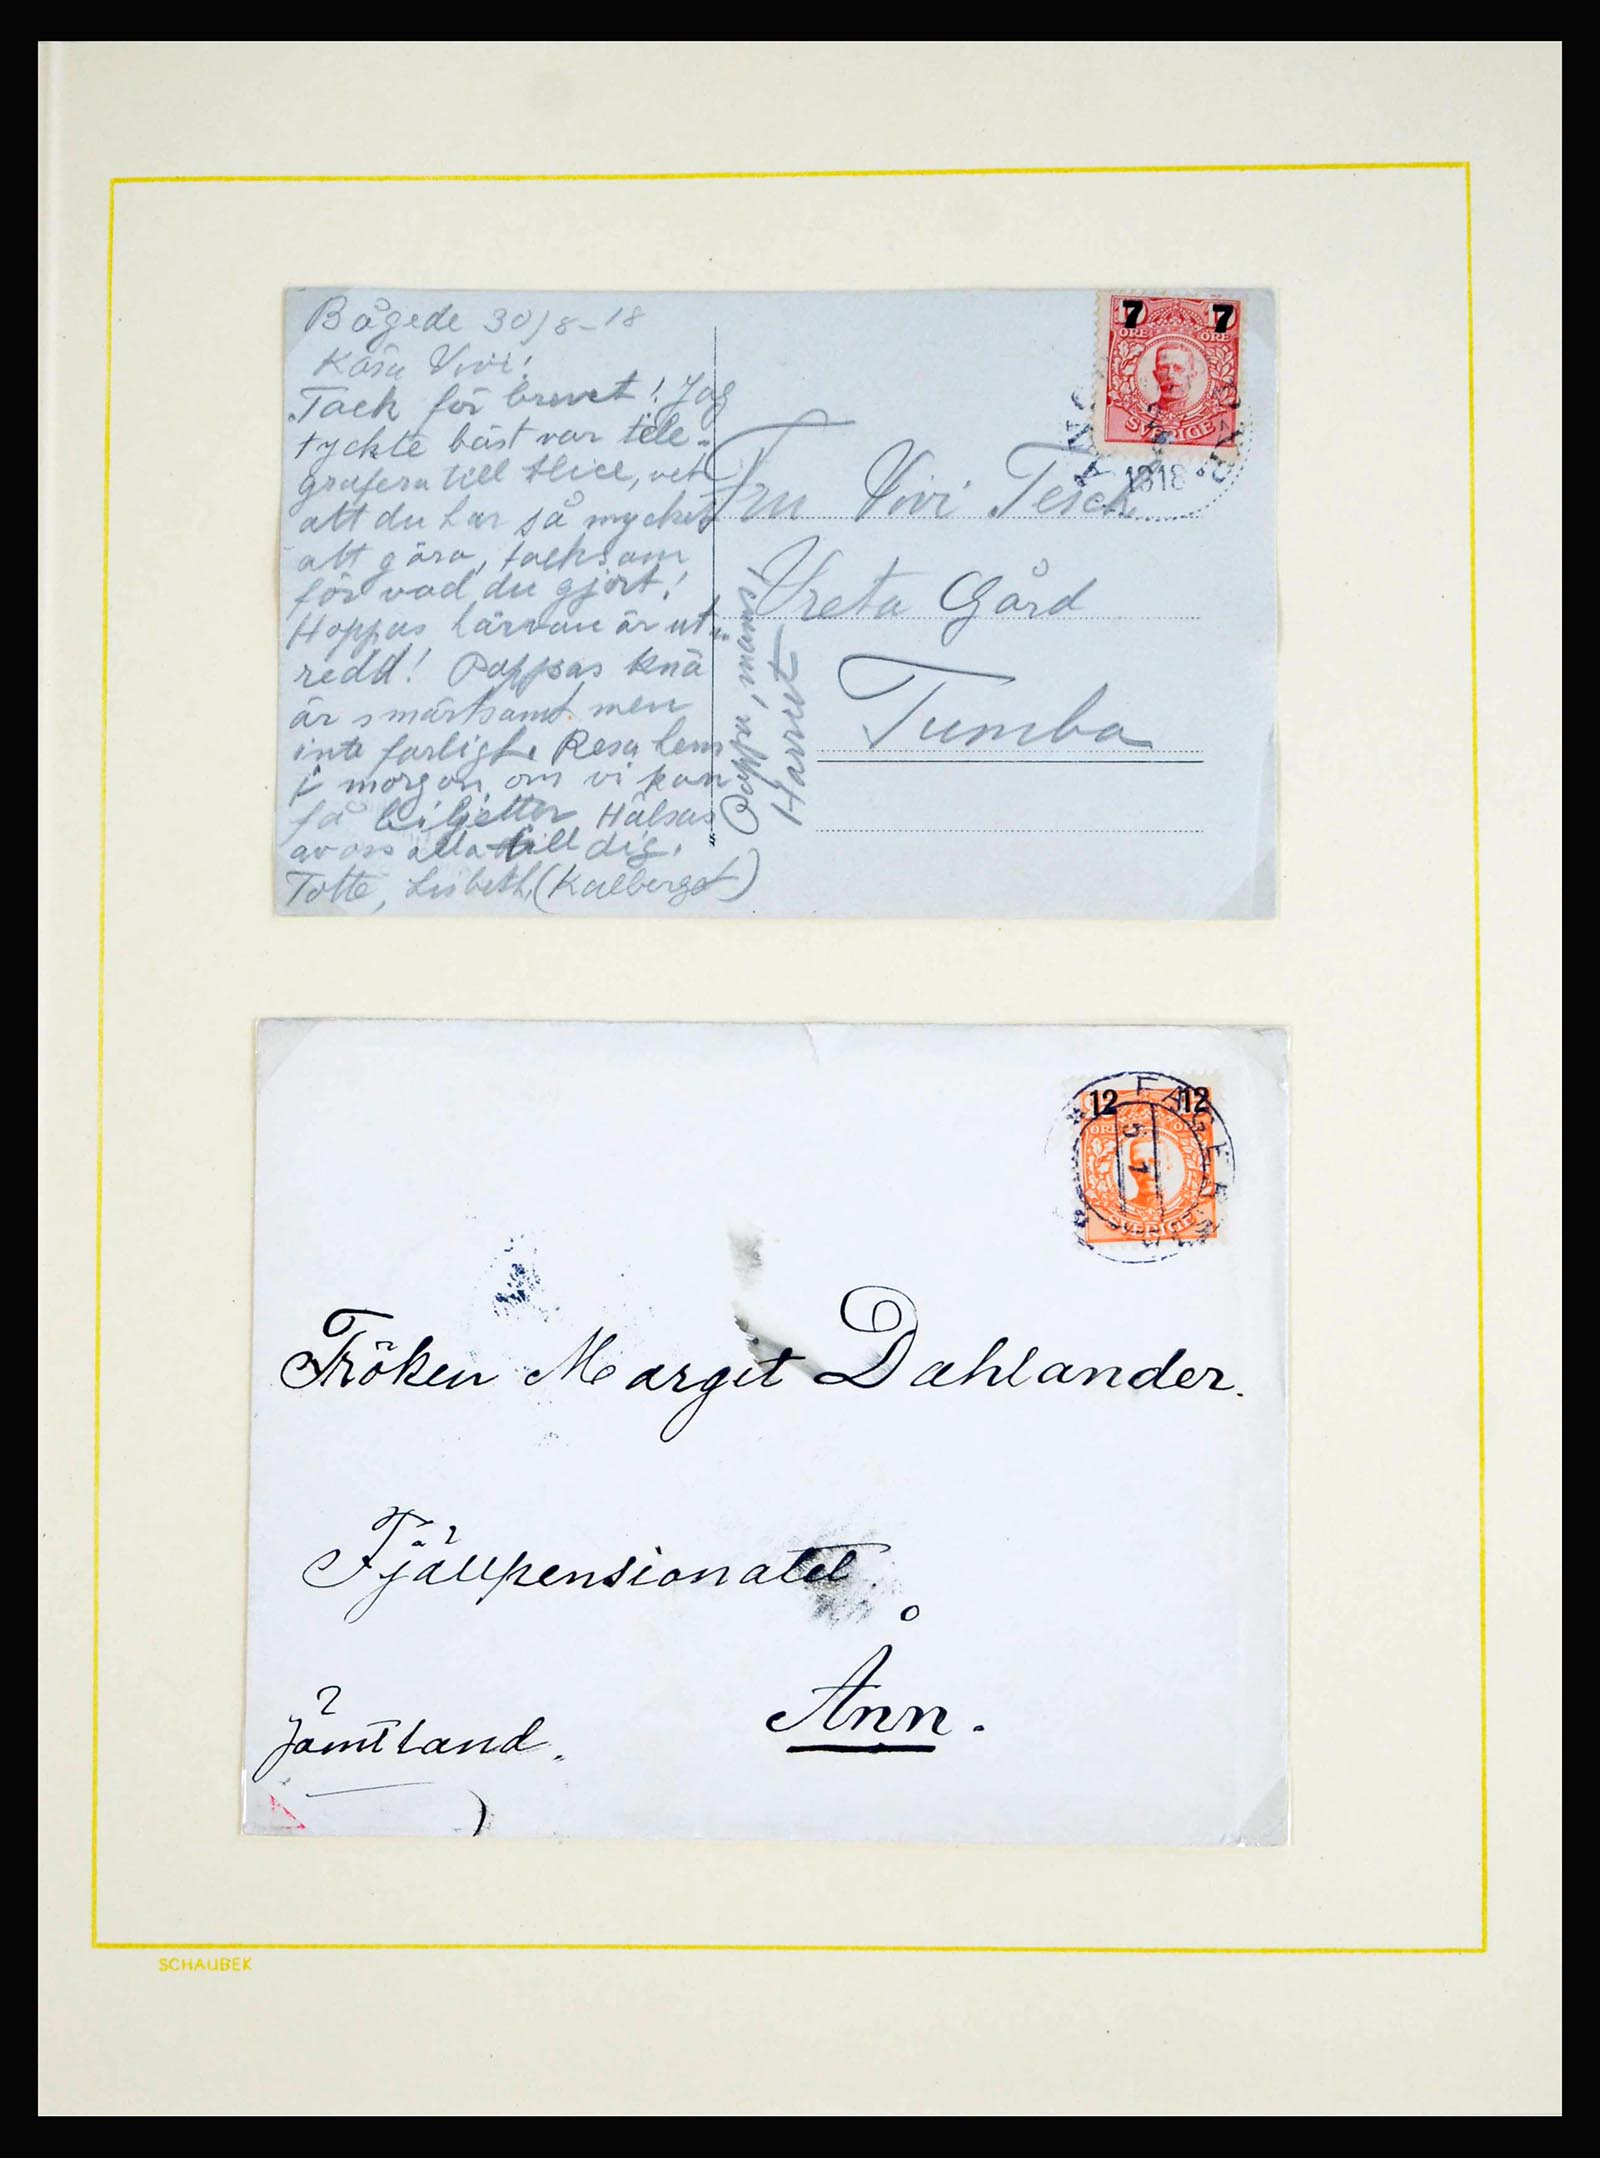 Bågede 30/8-18
Kära Vivi!
Tack för brevet! Jag
tyckte bäst var tele-
grafera till Alice, vet
att du har så mycket
att göra, tacksam
för vad du gjort!
Hoppas härvan är ut-
redd! Pappas knä
är smärtsamt men
inte farligt. Resa hem
i morgon, om vi kan
få biljetter. Hälsas
av oss alla till dig.
Totte, Lisbeth, (Kallberget)
Pappa, mams!
Harriet
7 7
ÖRE ÖRE
SVERIGE
1818
Fru Vivi Tesch
Vreta Gård
Tumba
12 12
ÖRE
SVERIGE
Fröken Margit Dahlander.
Fjällpensionatet
Ånn.
Jämtland.
SCHAUBEK